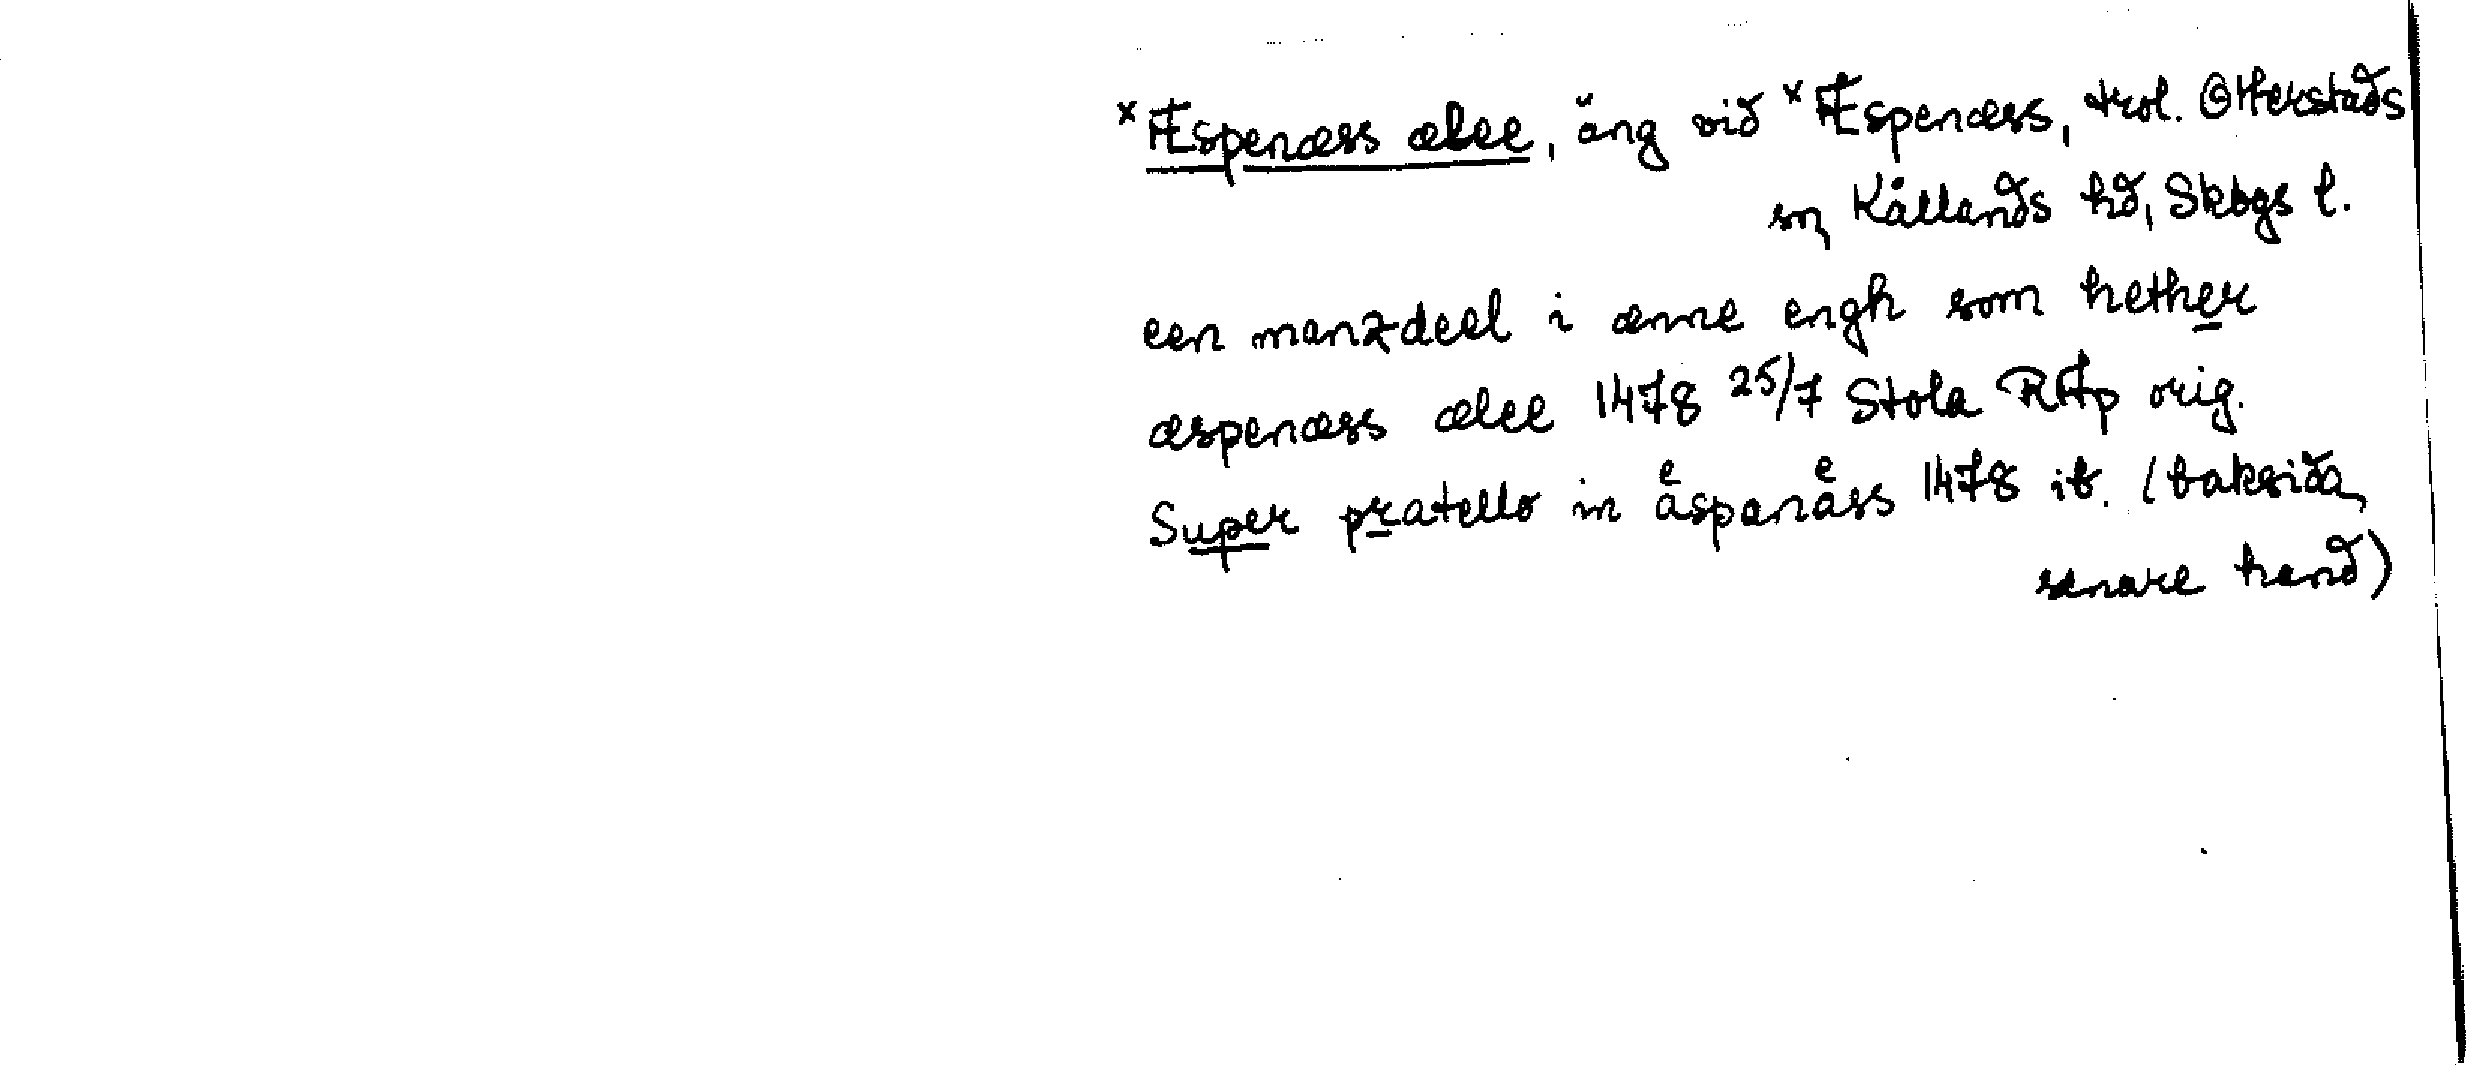 ×Æspenæss ælee, äng vid ×Æspenæss, trol. Otterstads
sn, Kållands hd, Skbgs l.
een manzdeel i ænne engh som hether
æspenæss ælee 1478 25/7 Stola RAp orig.
Super pratello in aͤspanaͤss 1478 ib. (baksida,
senare hand)